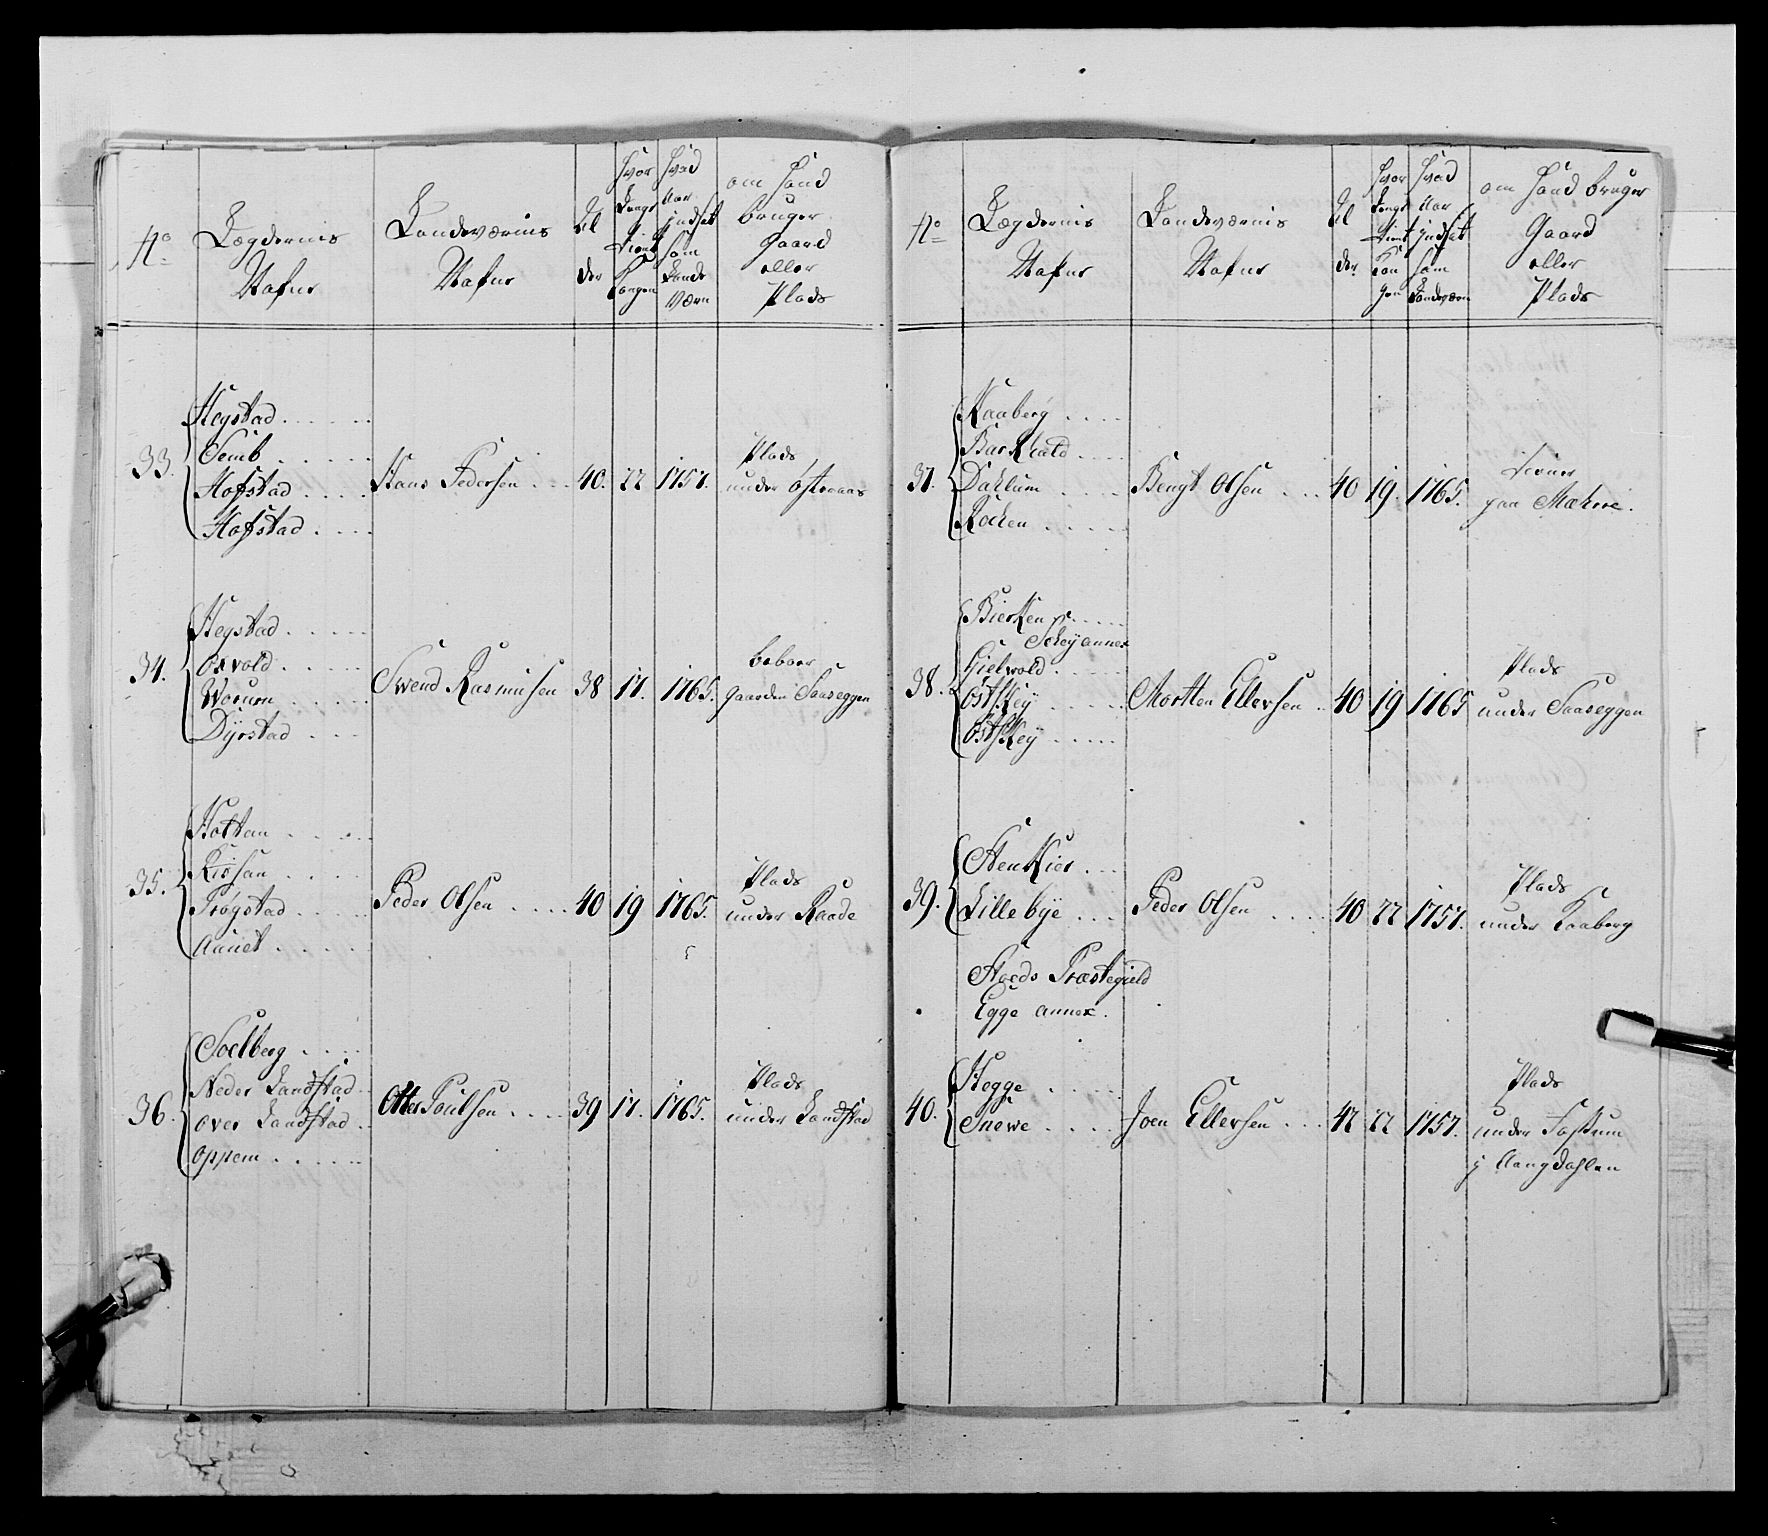 No
Lægdernis
Nafne
Landeværnis
Nafne
Al
der
hvor
Længe
tient
Kongen
hvad
Aar
Indsat
som
Lande
værn
om Hand
bruger
Gaard
eller
Plads
33.
Hegstad
Semb
Hofstad
Hofstad
Hans Pedersen
40.
22
1757.
Plads
under Østeraas
34.
Hegstad
Oxvold
Worum
Dyrstad
Swend Rasmusen
38
17.
1765.
beboer
gaarden Saaseggen
35.
Hottan
Rishan
Trøgstad
Aunet
Peder Olsen
40
19
1765.
Plads
under Raade
36.
Soelberg
Neder Landstad
over Landstad
oppem
Otter Poulsen
39
17.
1765.
Plads
under Landstad
No
Lægdernis
Nafne
Landeværnis
Nafne
Al
der.
hvor
Længe
tient
Kon
gen
hvad
Aar
Indsat
som
Landeværn
om Hand bruger
Gaard
eller
Plads
37.
Kaaberg
Barkhald
Dahlum
Rochen
Bengt Olsen
40
19.
1765.
tiener
paa Mæhre.
38.
Bierken
Schey annex
Gielvold
Østskey
Østskey
Mortten Ellevsen
40
19
1765
Plads
under Saaseggen
39.
Stenkier
Lillebye
Peder Olsen
40
22
1757.
Plads
under Kaaberg
Stoeds Præstegield
Egge annex.
40.
Hegge
Snewe
Joen Ellevsen
42
22
1757.
Plads
under Foskum
j Aangdahlen